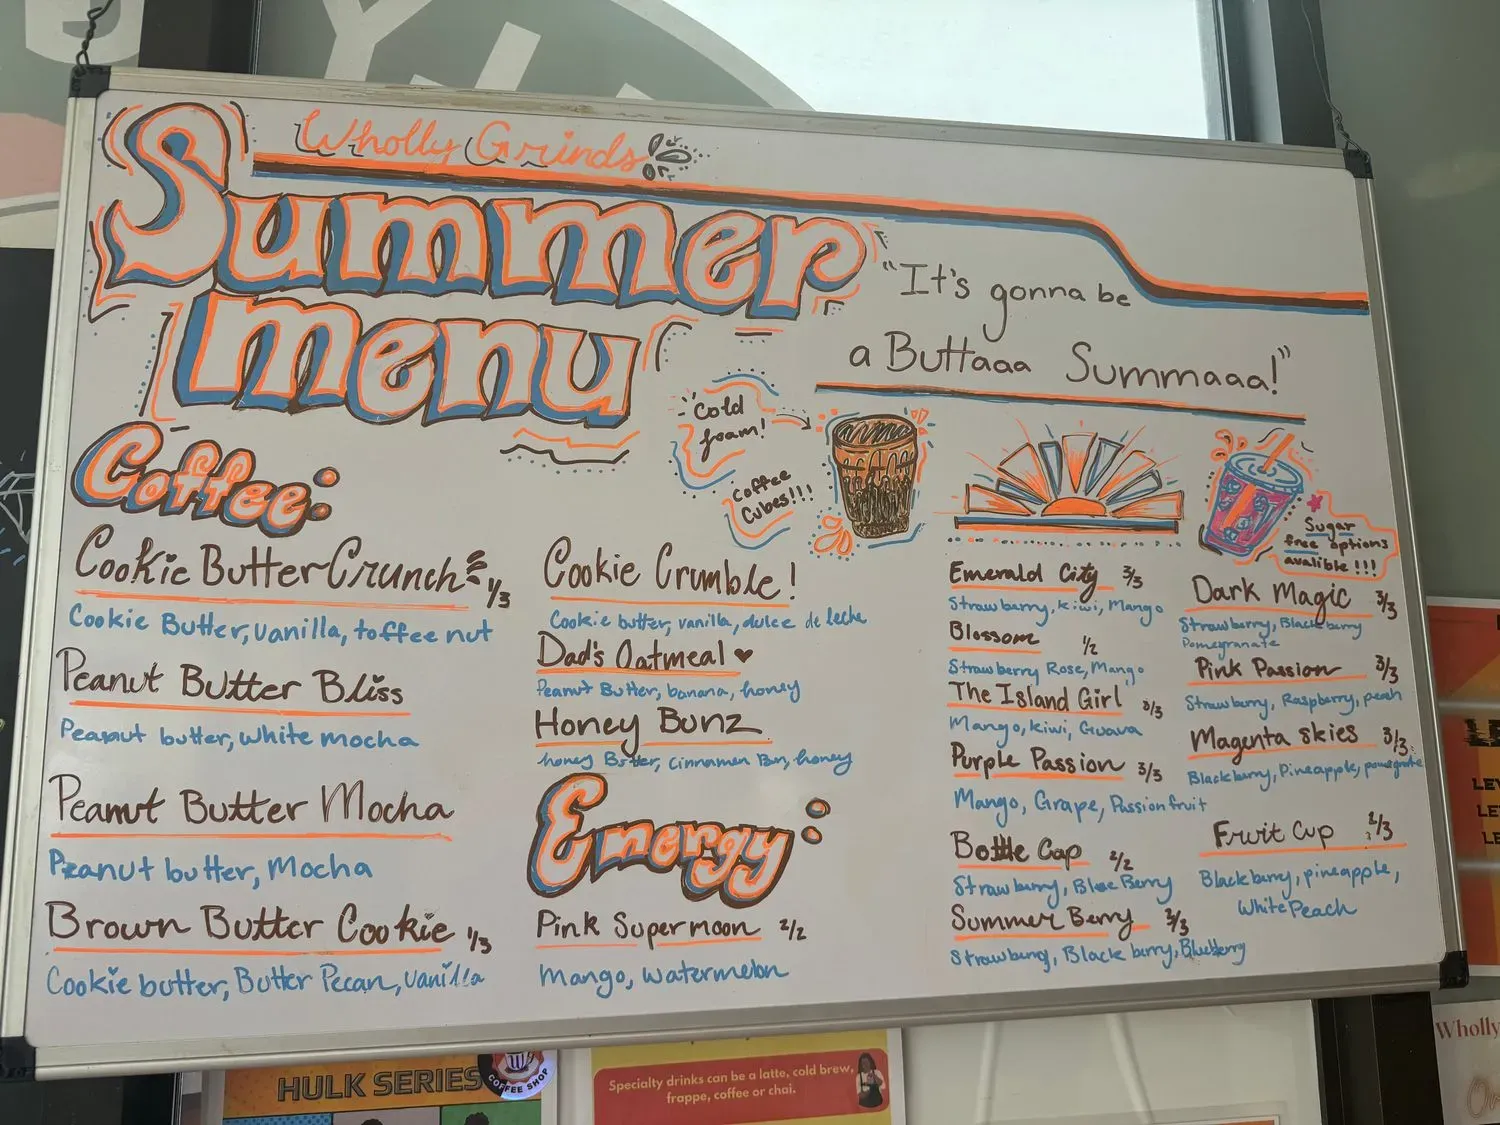 Wholly Grinds
Summer
menu
"It's gonna be
a Buttaaa Summaaa!"
Cold
foam!
Coffee
Cubes!!!
Sugar
free options
avalible!!!
Coffee:
Cookie Butter Crunch 1/3
Cookie Butter, vanilla, toffee nut
Peanut Butter Bliss
Peanut butter, white mocha
Peanut Butter Mocha
Peanut butter, Mocha
Brown Butter Cookie 1/3
Cookie butter, Butter Pecan, vanilla
Cookie Crumble!
Cookie butter, vanilla, dulce de leche
Dad's Oatmeal ♥
Peanut Butter, banana, honey
Honey Bunz
honey Butter, Cinnamen Bun, honey
Energy:
Pink Supermoon 2/2
Mango, watermelon
Emerald City 3/3
Strawberry, kiwi, Mango
Blossom 1/2
Strawberry Rose, Mango
The Island Girl 3/3
Mango, kiwi, Guava
Purple Passion 3/3
Mango, Grape, Passion fruit
Bottle Cap 2/2
Strawberry, Blue Berry
Summer Berry 3/3
Strawberry, Black berry, Blueberry
Dark Magic 3/3
Strawberry, Black berry
Pomegranate
Pink Passion 3/3
Strawberry, Raspberry, peach
Magenta skies 3/3
Blackberry, Pineapple, pomegranate
Fruit Cup 2/3
Blackberry, pineapple,
White Peach
HULK SERIES
COFFEE SHOP
Specialty drinks can be a latte, cold brew,
frappe, coffee or chai.
Wholly